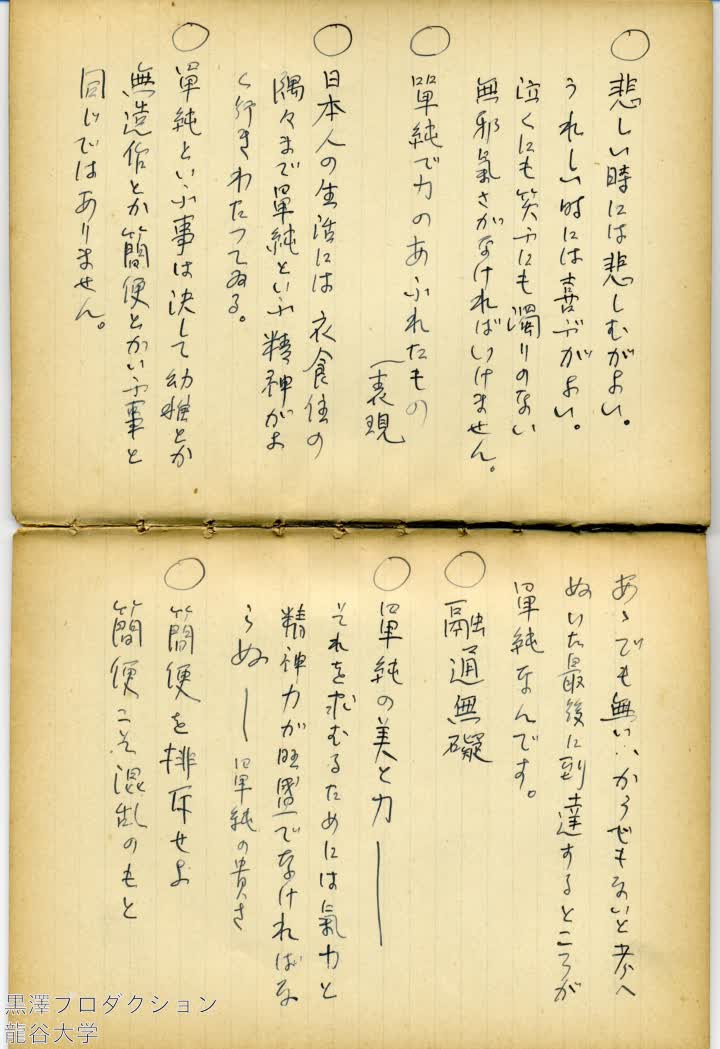 ○ 悲しい時には悲しむがよい。
うれしい時には喜ぶがよい。
泣くにも笑ふにも濁りのない
無邪氣さがなければいけません。
○ 單純で力のあふれたもの
（表現
○ 日本人の生活には衣食住の
隅々まで單純といふ精神がよ
く行きわたつてゐる。
○ 單純といふ事は決して幼稚とか
無造作とか簡便とかいふ事と
同じではありません。
あゝでも無い、かうでもないと考へ
ぬいた最後に到達するところが
單純なんです。
○ 融通無礙
○ 單純の美と力——
それを求むるためには氣力と
精神力が旺盛でなければな
らぬ——單純の貴さ
○ 簡便を排斥せよ
簡便こそ混乱のもと
黒澤プロダクション
龍谷大学